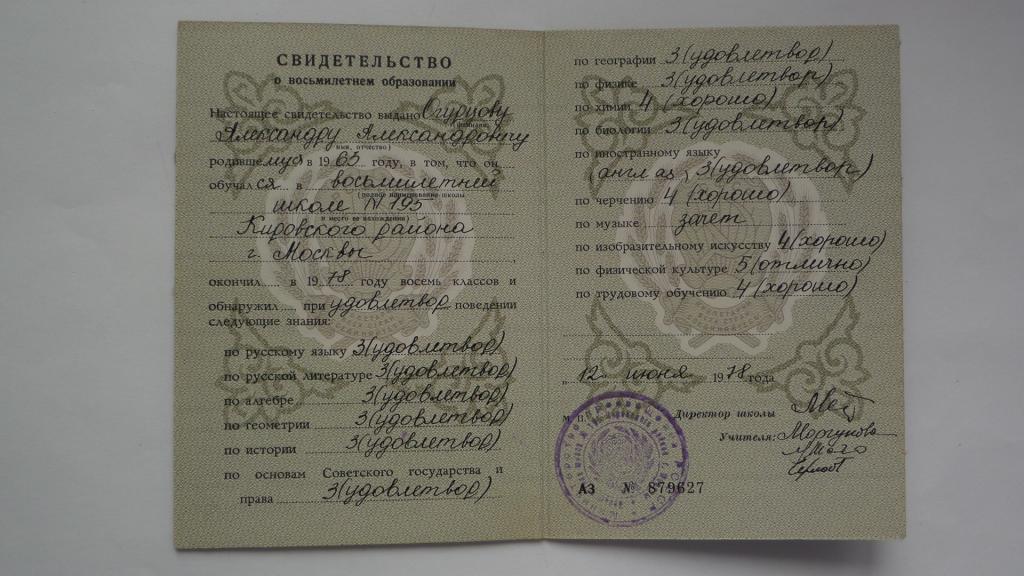 СВИДЕТЕЛЬСТВО
о восьмилетнем образовании
Настоящее свидетельство выдано Огурцову
(фамилия,
Александру Александровичу
имя, отчество)
родившемуся в 1963 году, в том, что он
обучался в восьмилетней
(полное наименование школы
школе N 195
и место ее нахождения)
Кировского района
г. Москвы
окончил в 1978 году восемь классов и
обнаружил при удовлетвор. поведении
следующие знания:
по русскому языку 3(удовлетвор)
по русской литературе 3(удовлетвор)
по алгебре 3(удовлетвор)
по геометрии 3(удовлетвор)
по истории 3(удовлетвор)
по основам Советского государства и
права 3(удовлетвор)
по географии 3(удовлетвор)
по физике 3(удовлетвор)
по химии 4 (хорошо)
по биологии 3(удовлетвор)
по иностранному языку
(3(удовлетвор)
по черчению 4 (хорошо)
по музыке зачет
по изобразительному искусству 4(хорошо)
по физической культуре 5(отлично)
по трудовому обучению 4 (хорошо)
„ 12 июня 1978 года
Директор школы
Учителя: Моргунова
АЗ № 879627